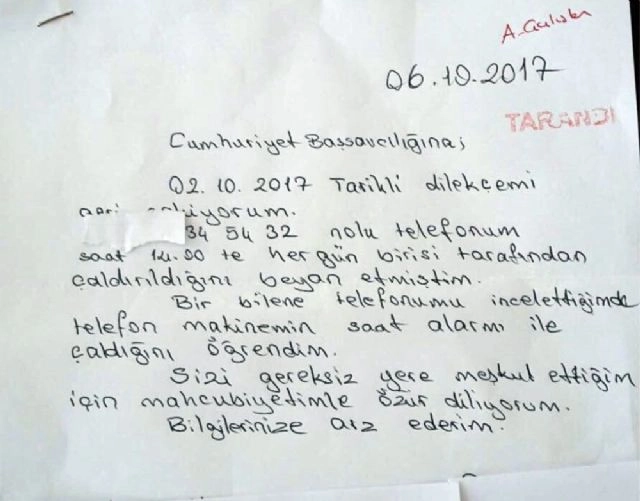 06.10.2017
TARANDI
Cumhuriyet Başsavcılığına;
02.10.2017 Tarihli dilekçemi
geri çekiyorum.
34 54 32 nolu telefonum
saat 14.00 te her gün birisi tarafından
çaldırıldığını beyan etmiştim.
Bir bilene telefonumu incelettiğimde
telefon makinemin saat alarmı ile
çaldığını öğrendim.
Sizi gereksiz yere meşkul ettiğim
için mahcubiyetimle özür diliyorum.
Bilgilerinize arz ederim.